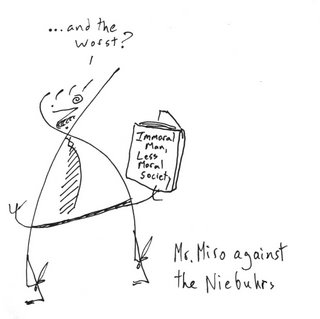 ...and the
worst?
Immoral
Man,
Less
Moral
Society
Mr. Miso against
the Niebuhrs